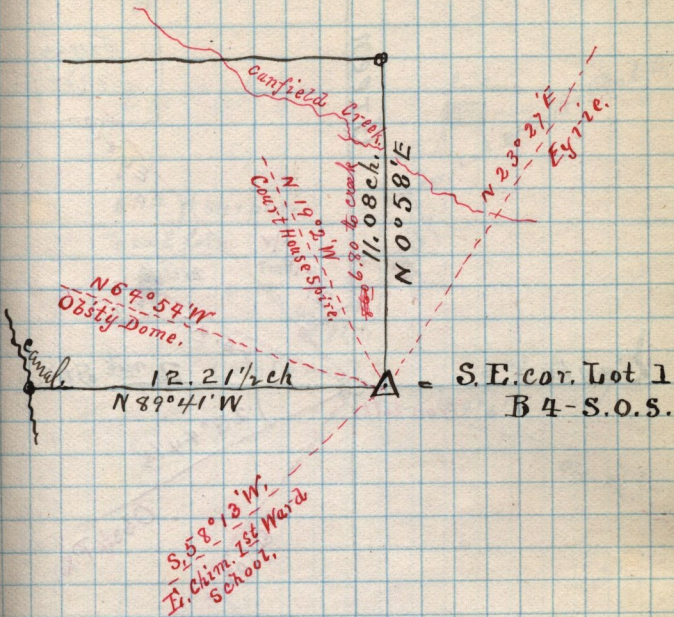 Canfield Creek.
N 23° 27' E
Eyrie.
11.08 ch.
N 0° 58' E
6.80 to creek
N 19° 2' W
Court House Spire.
N 64° 54' W
Obsty Dome.
canal.
12.21 1/2 ch
N 89° 41' W
= S.E. cor. Lot 1
B 4 - S.O.S.
S. 58° 13' W.
E. Chim. 1st Ward
School.